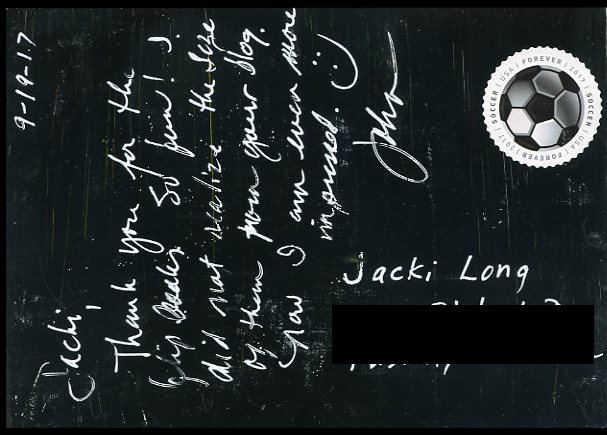 9-19-17
Jacki,
Thank you for the
flip books. So fun! I
did not realize the size
of them from your blog.
Now I am even more
impressed. :)
John
SOCCER | USA | FOREVER | 2017 | SOCCER | USA | FOREVER | 2017
Jacki Long